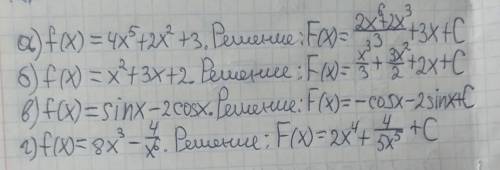 а) f(x) = 4x⁵ + 2x² + 3. Решение: F(x) = (2x⁶ + 2x³)/3 + 3x + C
б) f(x) = x² + 3x + 2. Решение: F(x) = x³/3 + 3x²/2 + 2x + C
в) f(x) = sinx - 2cosx. Решение: F(x) = -cosx - 2sinx + C
г) f(x) = 8x³ - 4/x⁶. Решение: F(x) = 2x⁴ + 4/5x⁵ + C